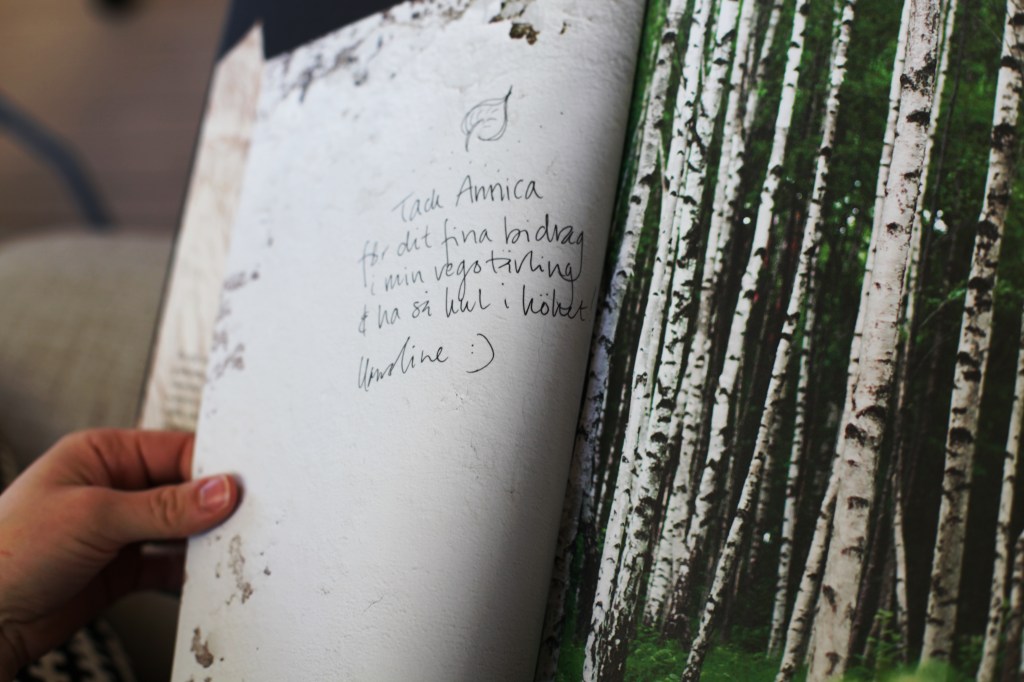 Tack Annica
för ditt fina bidrag
i min vegotävling
& ha så kul i köket
Karoline :)